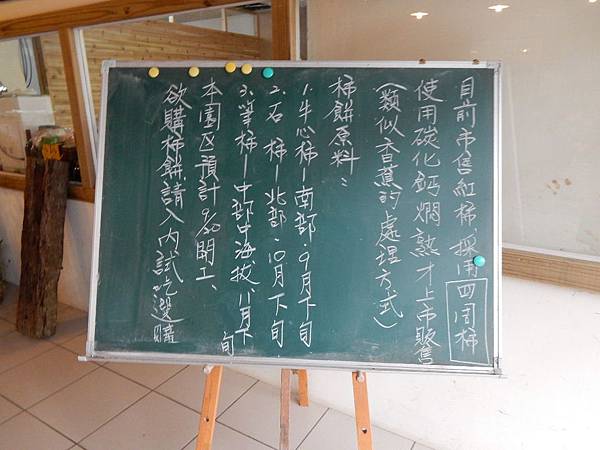 目前市售紅柿，採用四周柿
使用碳化鈣燜熟才上市販售
(類似香蕉的處理方式)
柿餅原料：
1. 牛心柿－南部．9月下旬
2. 石柿－北部．10月下旬
3. 筆柿－中部中海拔 11月下旬
本園区預計9/20開工、
欲購柿餅請入內試吃選購